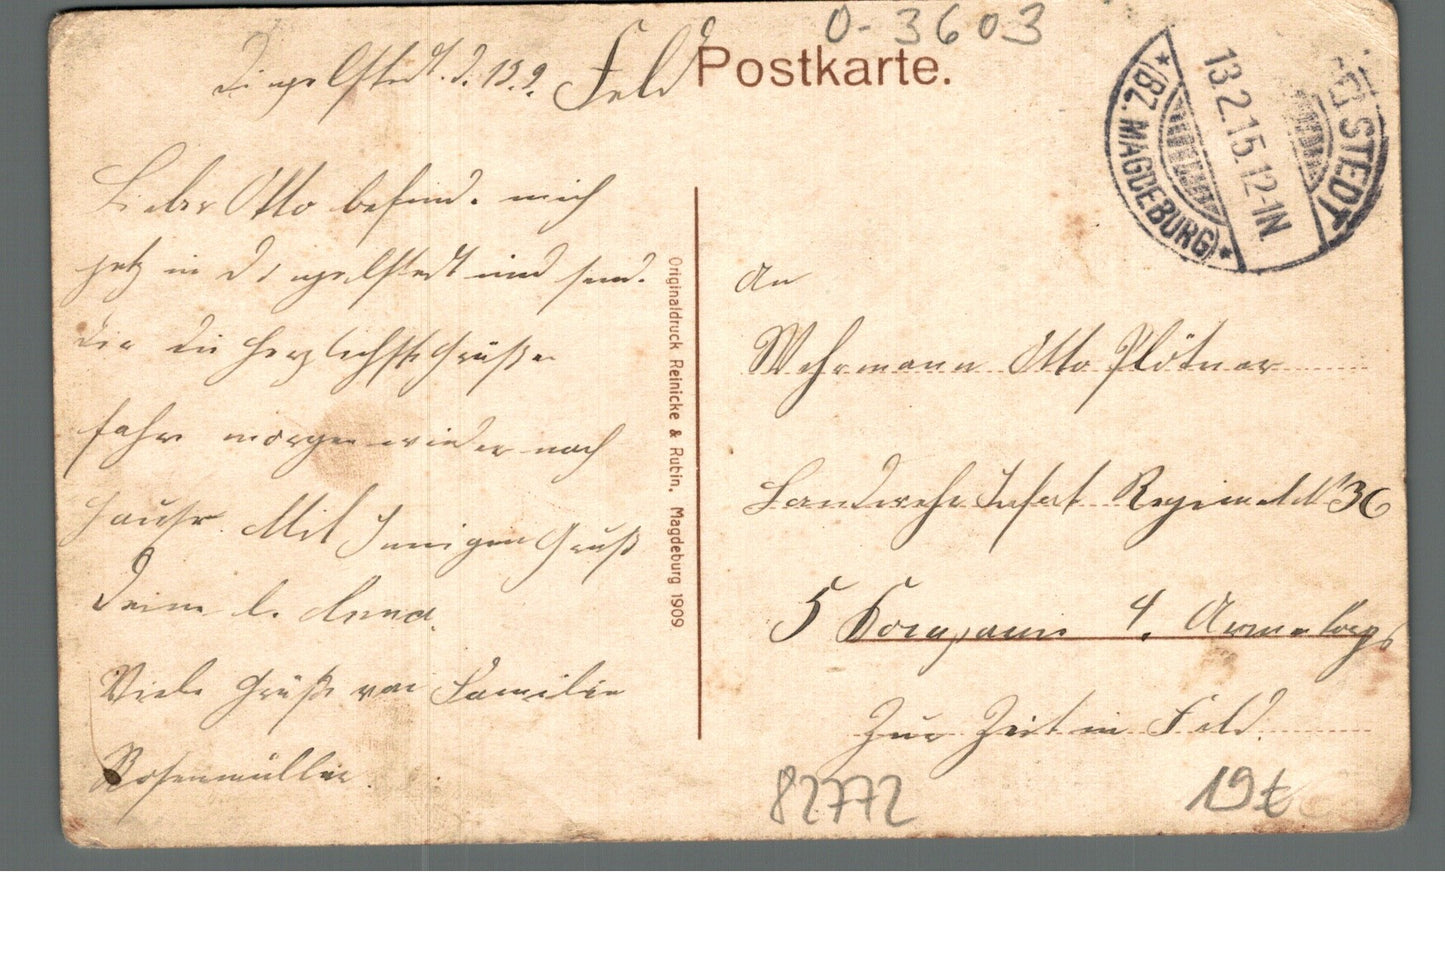 O-3603
Dingelstedt. d. 13.2. Feld Postkarte.
ELSTEDT
13.2.15.12-1N.
* (BZ. MAGDEBURG) *
Lieber Otto befinde mich
jetz in Dingelstedt und sende
dir die herzlichste Grüße
fahre morgen wieder nach
Hause. Mit Innigen Gruß
Deine l. Anna.
Viele Grüße von Familie
Rosenmüller
Originaldruck Reinicke & Rubin, Magdeburg 1909
An
Wehrmann Otto Plötner
Landwehr Infat Regiment N 36
5 Kompanie 4. Armekorps
Zur Zeit in Feld.
82772